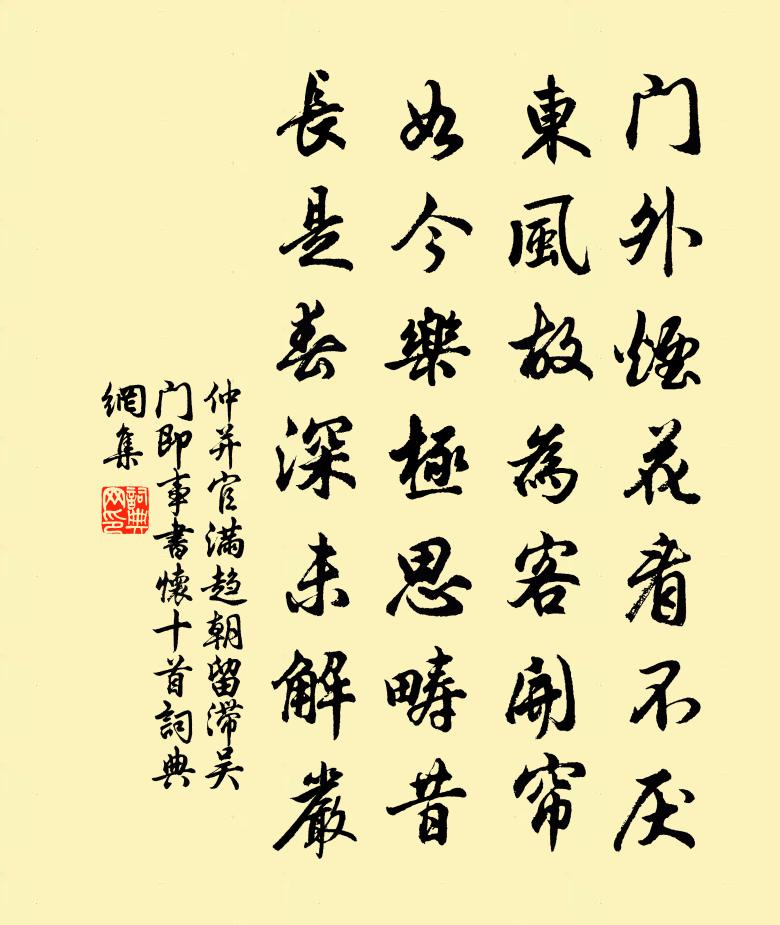 门外煙花看不厌
東風故為客開帘
如今樂極思疇昔
長是春深未解嚴
仲并官滿趋朝留滞吴
门即事書懷十首詞典
網集
詞典网印